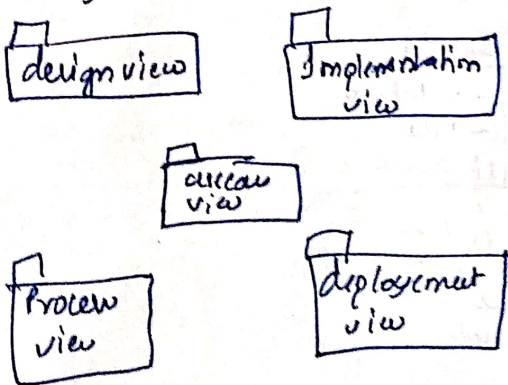 design view
Implementation
view
view
Process
view
deployement
view